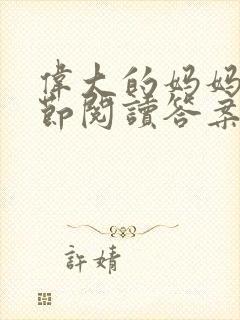 偉大的妈妈
節閱讀答案
許婧